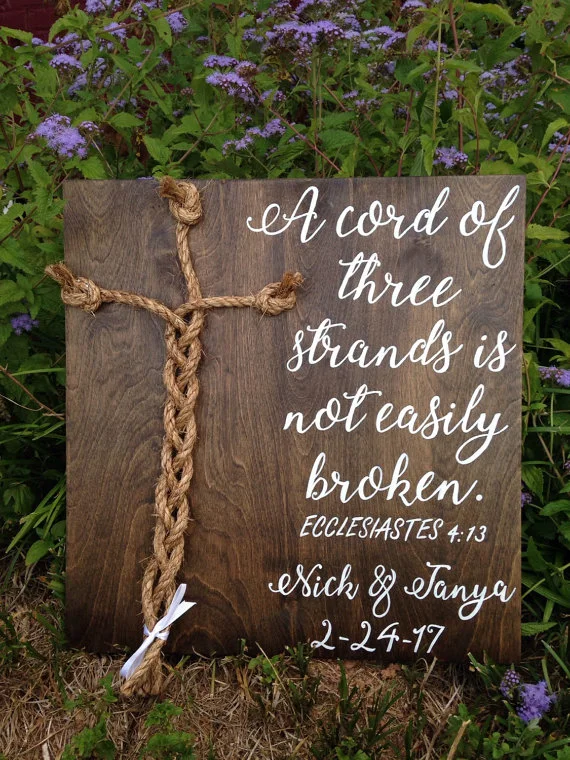 A cord of
three
strands is
not easily
broken.
ECCLESIASTES 4:13
Nick & Tanya
2-24-17